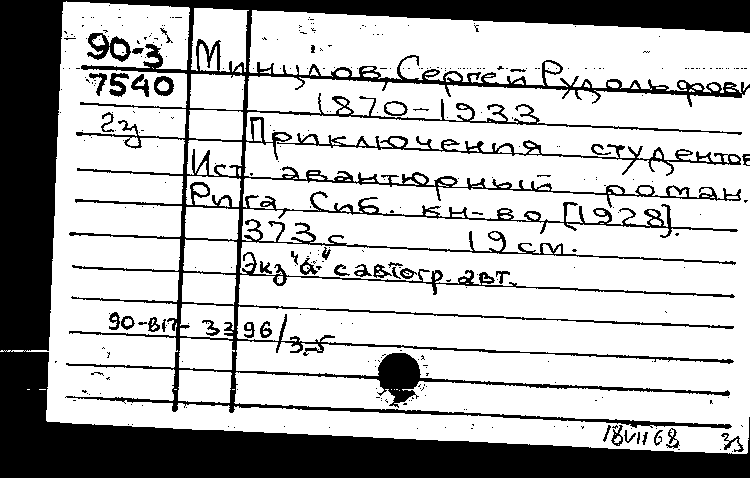 90-3
7540
2э
Минцлов, Сергей Рудольфови
1870-1933
Приключения студентов
Ист. авантюрный роман.
Рига, Сиб. кн-во, [1928].
373 с 19 см.
Экз "а" с автогр. авт.
90-ВП- 3396/3,5
18VII68